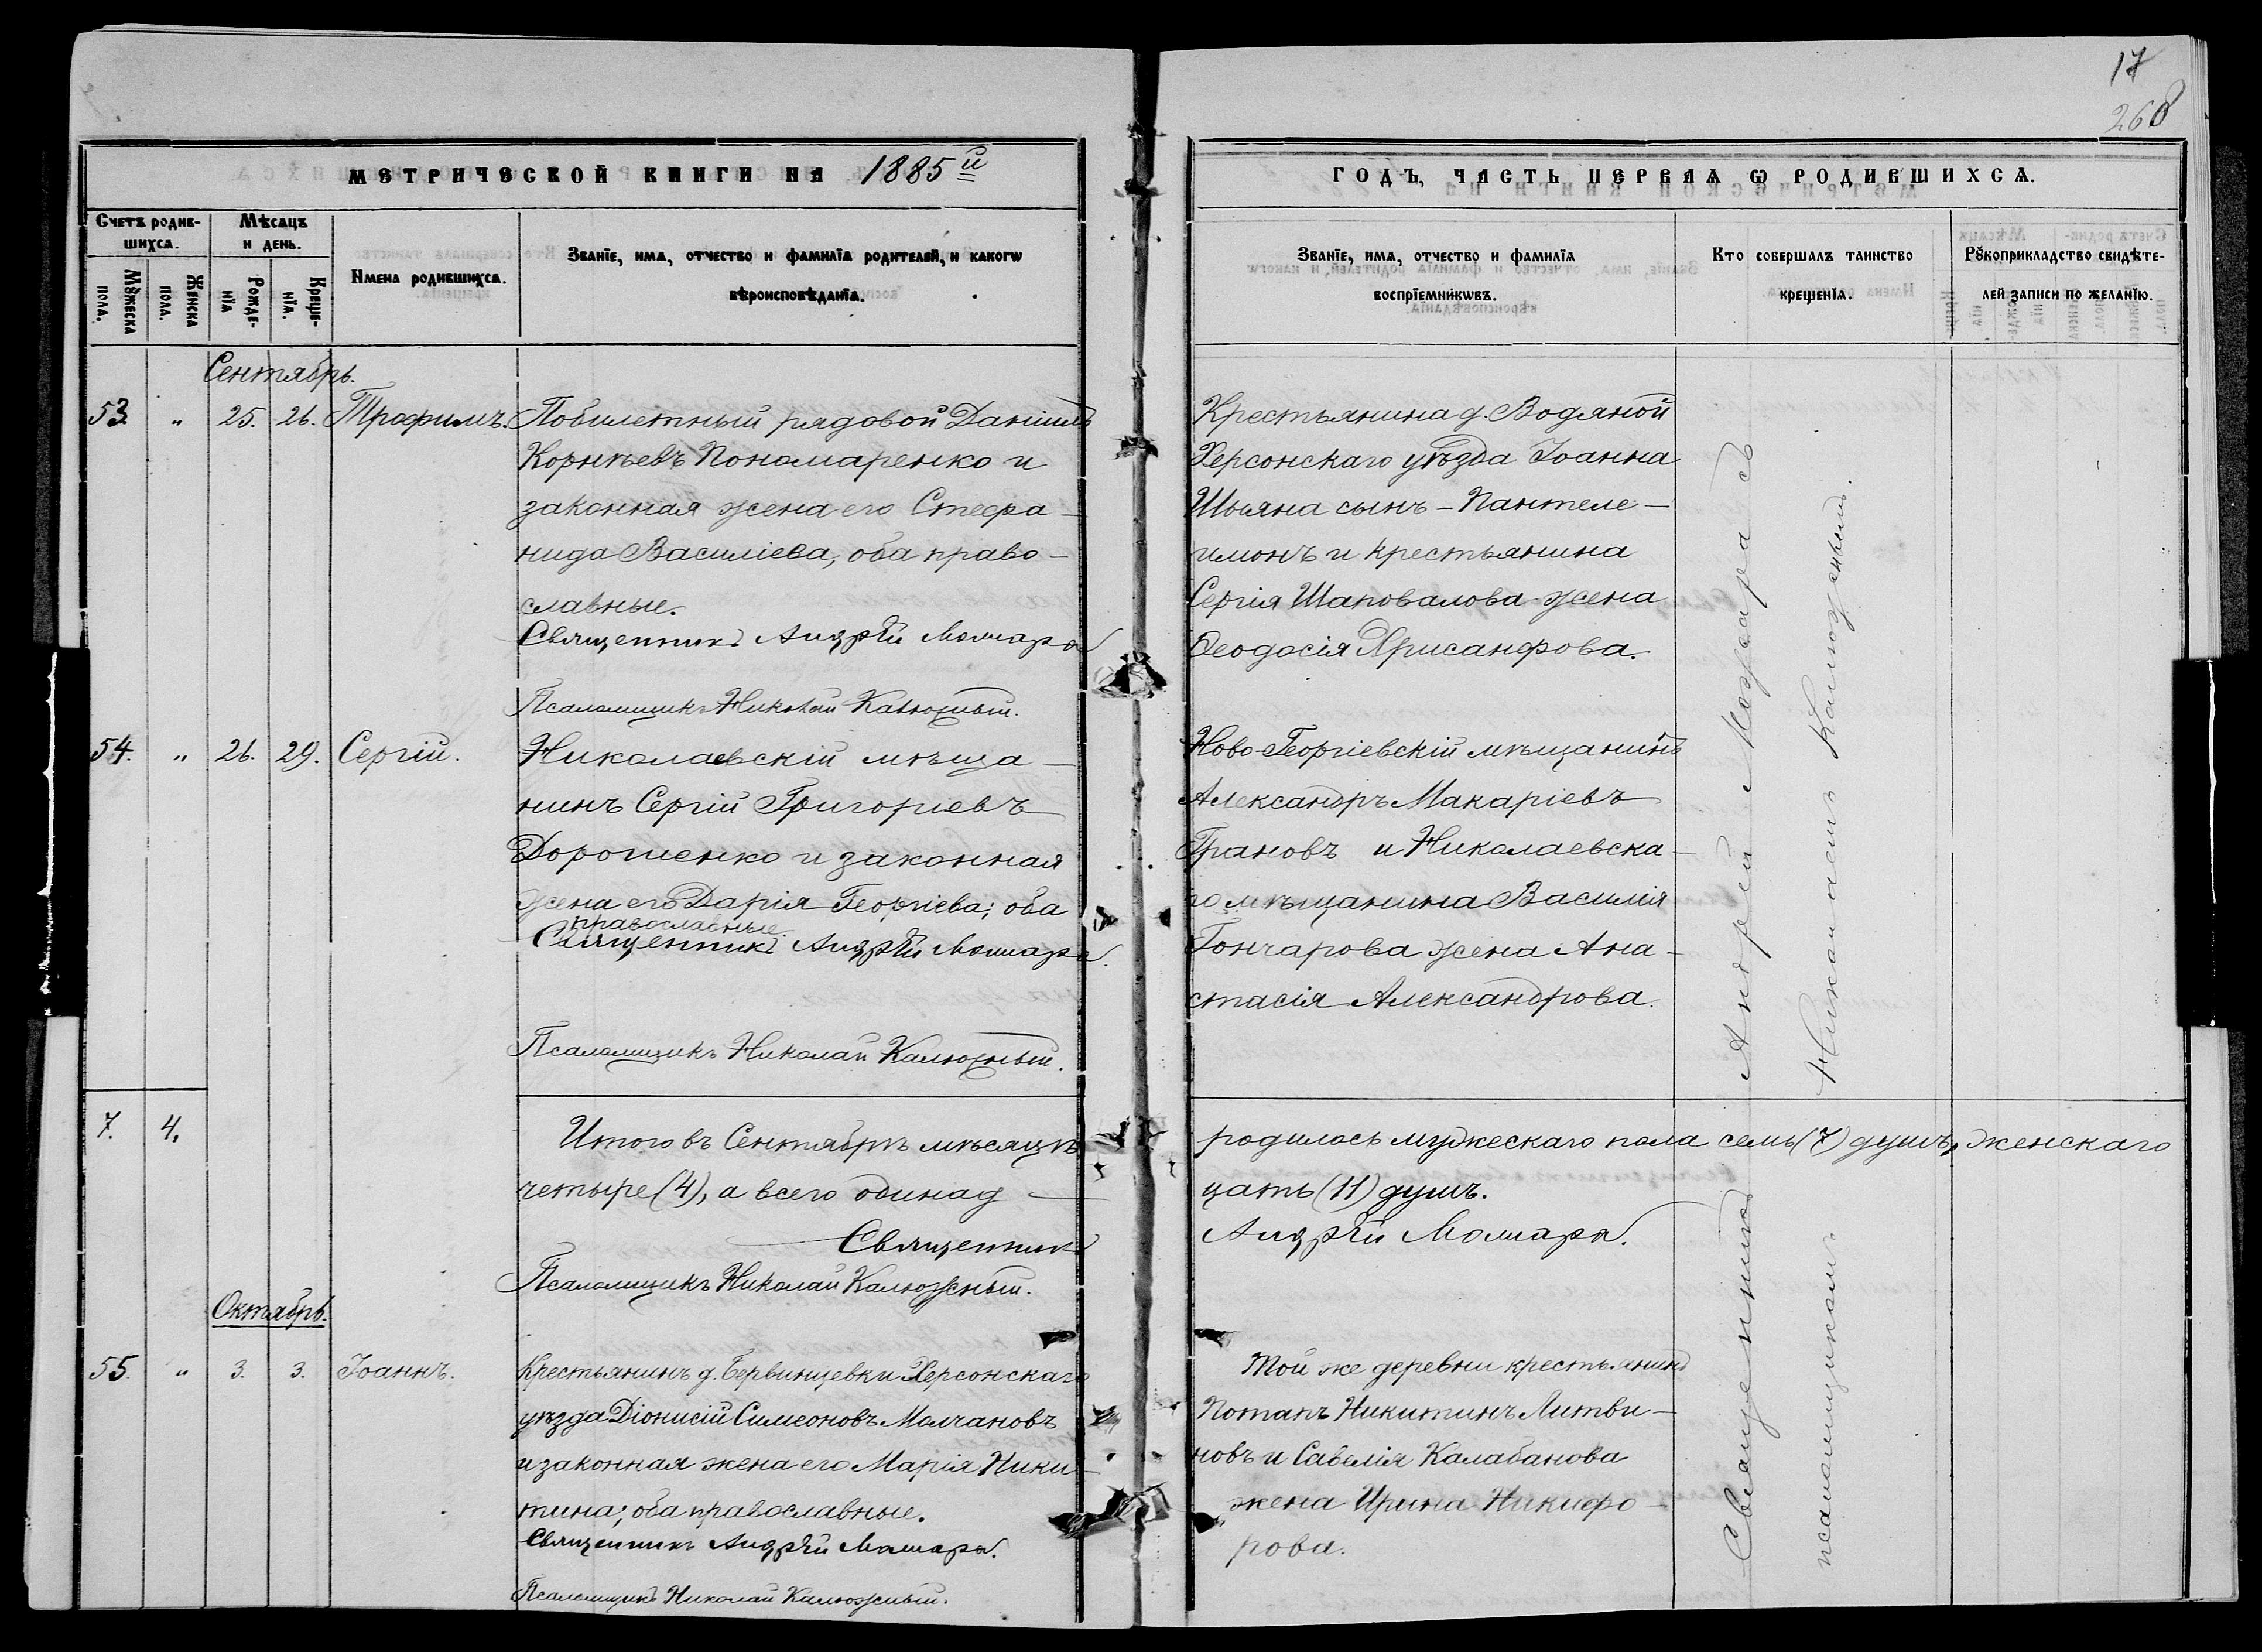 17
268
МЕТРИЧЕСКОЙ КНИГИ НА 1885й
ГОДЪ, ЧАСТЬ ПЕРВАѦ Ѡ РОДИВШИХСѦ.
Счетъ родив-
шихсѧ.
Мѣсѧцъ
и день.
Мꙋжеска
пола.
Женска
пола.
Рожде-
нїѧ
Креще-
нїѧ.
Имена родившихсѧ.
Званїе, имѧ, отчество и фамилїѧ родителей, и какогѡ
вѣроисповѣданїѧ.
Званїе, имѧ, отчество и фамилїѧ
воспрїемникѡвъ.
Кто совершалъ таинство
крещенїѧ.
Рꙋкоприкладство свидѣте-
лей записи по желанїю.
Сентябрь.
53. " 25. 26. Трофимъ.
Побилетный рядовой Даніилъ
Корнѣевъ Пономаренко и
законная жена его Стефа-
нида Василіева, оба право-
славные.
Священникъ Андрей
Псаломщикъ Николай Калюжный.
Крестьянина д. Водяной
Херсонскаго уѣзда Іоанна
сынъ - Пантеле-
имонъ и крестьянина
Сергія Шаповалова жена
Ѳеодосія Хрисанфова.
54. " 26. 29. Сергій.
Николаевскій мѣща-
нинъ Сергій Григоріевъ
Дорошенко и законная
жена его Дарія Георгіева; оба
православные.
Священникъ Андрей
Псаломщикъ Николай Калюжный.
Ново-Георгіевскій мѣщанинъ
Александръ Макаріевъ
Грановъ и Николаевска-
го мѣщанина Василія
Гончарова жена Ана-
стасія Александрова.
7. 4.
Итого въ Сентябрѣ мѣсяцѣ родилось мужескаго пола семь (7) душъ, женскаго
четыре (4), а всего одинад - цать (11) душъ.
Священникъ Андрей
Псаломщикъ Николай Калюжный.
Октябрь.
55. " 3. 3. Іоаннъ.
Крестьянинъ д. Бервинцевки Херсонскаго
уѣзда Діонисій Симеоновъ Молчановъ
и законная жена его Марія Ники-
тина; оба православные.
Священникъ Андрей
Псаломщикъ Николай Калюжный.
Той же деревни крестьянинъ
Потапъ Никитинъ Литви-
новъ и Савелія Калабанова
жена Ирина Никифо-
рова.
Священникъ Андрей съ
псаломщикомъ Николаемъ Калюжнымъ.